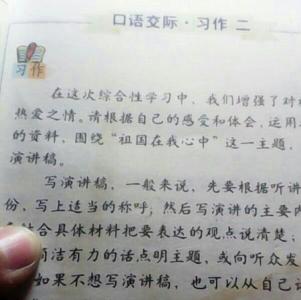 口语交际·习作二
习作
在这次综合性学习中，我们增强了对
热爱之情。请根据自己的感受和体会，运用
的资料，围绕“祖国在我心中”这一主题，
演讲稿。
写演讲稿，一般来说，先要根据听讲
份，写上适当的称呼；然后写演讲的主要内
结合具体材料把要表达的观点说清楚；
简洁有力的话点明主题，或向听众发
如果不想写演讲稿，也可以从自己